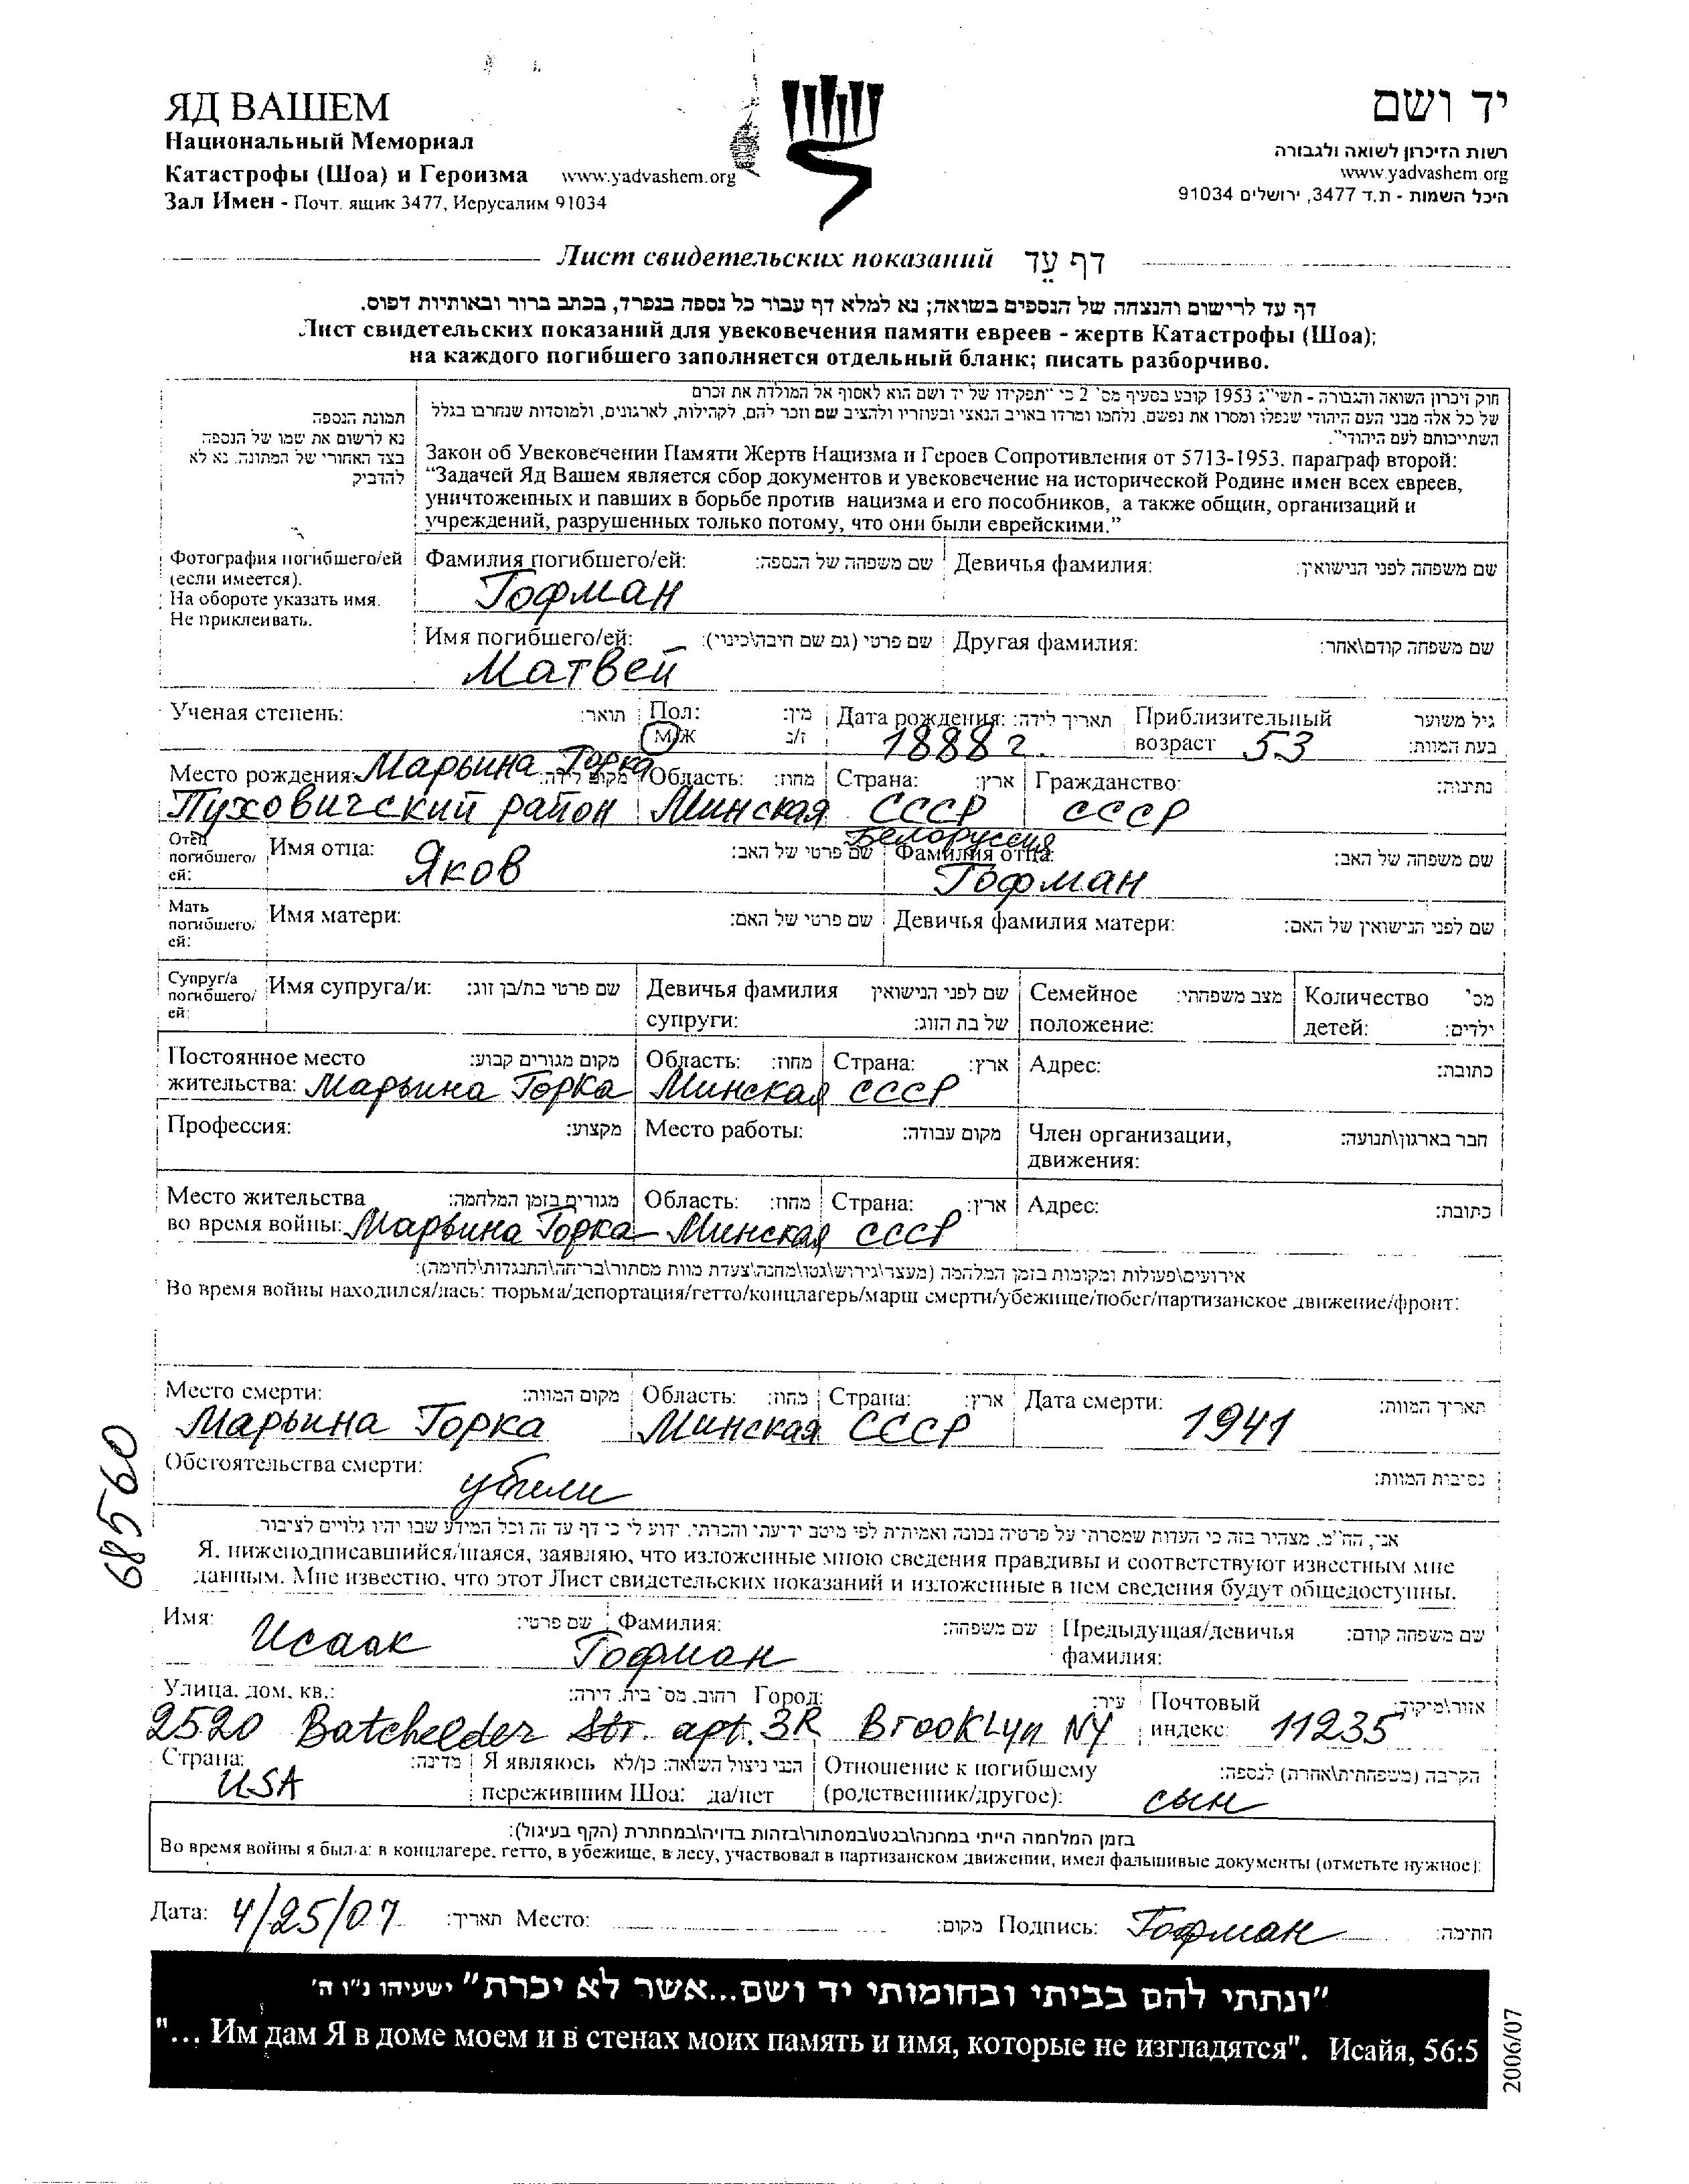 ЯД ВАШЕМ
Национальный Мемориал
Катастрофы (Шоа) и Героизма www.yadvashem.org
Зал Имен - Почт. ящик 3477, Иерусалим 91034
יד ושם
רשות הזיכרון לשואה ולגבורה
www.yadvashem.org
היכל השמות - ת.ד 3477, ירושלים 91034
Лист свидетельских показаний דף עֵד
דף עד לרישום והנצחה של הנספים בשואה; נא למלא דף עבור כל נספה בנפרד, בכתב ברור ובאותיות דפוס.
Лист свидетельских показаний для увековечения памяти евреев - жертв Катастрофы (Шоа);
на каждого погибшего заполняется отдельный бланк; писать разборчиво.
חוק זיכרון השואה והגבורה - תשי"ג 1953 קובע בסעיף מס' 2 כי "תפקידו של יד ושם הוא לאסוף אל המולדת את זכרם
של כל אלה מבני העם היהודי שנפלו ומסרו את נפשם, נלחמו ומרדו באויב הנאצי ובעוזריו ולהציב שם וזכר להם, לקהילות, לארגונים, ולמוסדות שנחרבו בגלל
השתייכותם לעם היהודי".
Закон об Увековечении Памяти Жертв Нацизма и Героев Сопротивления от 5713-1953. параграф второй:
“Задачей Яд Вашем является сбор документов и увековечение на исторической Родине имен всех евреев,
уничтоженных и павших в борьбе против нацизма и его пособников, а также общин, организаций и
учреждений, разрушенных только потому, что они были еврейскими.”
תמונת הנספה
נא לרשום את שמו של הנספה
בצד האחורי של התמונה. נא לא
להדביק
Фотография погибшего/ей
(если имеется).
На обороте указать имя.
Не приклеивать.
Фамилия погибшего/ей: שם משפחה של הנספה: Девичья фамилия: שם משפחה לפני הנישואין:
Гофман
Имя погибшего/ей: שם פרטי (גם שם חיבה\כינוי): Другая фамилия: שם משפחה קודם\אחר:
Матвей
Ученая степень: תואר: Пол: מין: Дата рождения: תאריך לידה: Приблизительный גיל משוער
М/Ж ז/נ 1888 г. возраст 53 בעת המוות:
Место рождения: Марьина Горка מקום לידה: Область: מחוז: Страна: ארץ: Гражданство: נתינות:
Пуховичский район Минская СССР СССР
Белоруссия
Отец погибшего/ей: Имя отца: שם פרטי של האב: Фамилия отца: שם משפחה של האב:
Яков Гофман
Мать погибшего/ей: Имя матери: שם פרטי של האם: Девичья фамилия матери: שם לפני הנישואין של האם:
Супруг/а погибшего/ей: Имя супруга/и: שם פרטי בת/בן זוג: Девичья фамилия супруги: שם לפני הנישואין של בת הזוג: Семейное положение: מצב משפחתי: Количество детей: מס' ילדים:
Постоянное место מקום מגורים קבוע: Область: מחוז: Страна: ארץ: Адрес: כתובת:
жительства: Марьина Горка Минская СССР
Профессия: מקצוע: Место работы: מקום עבודה: Член организации, движения: חבר בארגון\תנועה:
Место жительства מגורים בזמן המלחמה: Область: מחוז: Страна: ארץ: Адрес: כתובת:
во время войны: Марьина Горка Минская СССР
אירועים\פעולות ומקומות בזמן המלחמה (מעצר\גירוש\גטו\מחנה\צעדת מוות מסתור\בריחה\התנגדות\לחימה):
Во время войны находился/лась: тюрьма/депортация/гетто/концлагерь/марш смерти/убежище/побег/партизанское движение/фронт:
Место смерти: מקום המוות: Область: מחוז: Страна: ארץ: Дата смерти: תאריך המוות:
Марьина Горка Минская СССР 1941
Обстоятельства смерти: נסיבות המוות:
убили
689560
אני, הח"מ, מצהיר בזה כי העדות שמסרתי על פרטיה נכונה ואמיתית לפי מיטב ידיעתי והכרתי. ידוע לי כי דף עד זה וכל המידע שבו יהיו גלויים לציבור.
Я, нижеподписавшийся/шаяся, заявляю, что изложенные мною сведения правдивы и соответствуют известным мне
данным. Мне известно, что этот Лист свидетельских показаний и изложенные в нем сведения будут общедоступны.
Имя: שם פרטי: Фамилия: שם משפחה: Предыдущая/девичья фамилия: שם משפחה קודם:
Исаак Гофман
Улица, дом, кв.: רחוב, מס' בית, דירה: Город: עיר: Почтовый индекс: אזור\מיקוד:
2520 Batchelder Str. apt. 3R Brooklyn NY 11235
Страна: מדינה: Я являюсь הנני ניצול השואה: כן/לא Отношение к погибшему הקרבה (משפחתית\אחרת) לנספה:
USA пережившим Шоа: да/нет (родственник/другое): сын
בזמן המלחמה הייתי במחנה\בגטו\במסתור\בזהות בדויה\במחתרת (הקף בעיגול):
Во время войны я был·а: в концлагере, гетто, в убежище, в лесу, участвовал в партизанском движении, имел фальшивые документы (отметьте нужное):
Дата: 4/25/07 תאריך: Место: מקום: Подпись: Гофман חתימה:
"ונתתי להם בביתי ובחומותי יד ושם...אשר לא יכרת" ישעיהו נ"ו ה'
"... Им дам Я в доме моем и в стенах моих память и имя, которые не изгладятся". Исайя, 56:5
2006/07